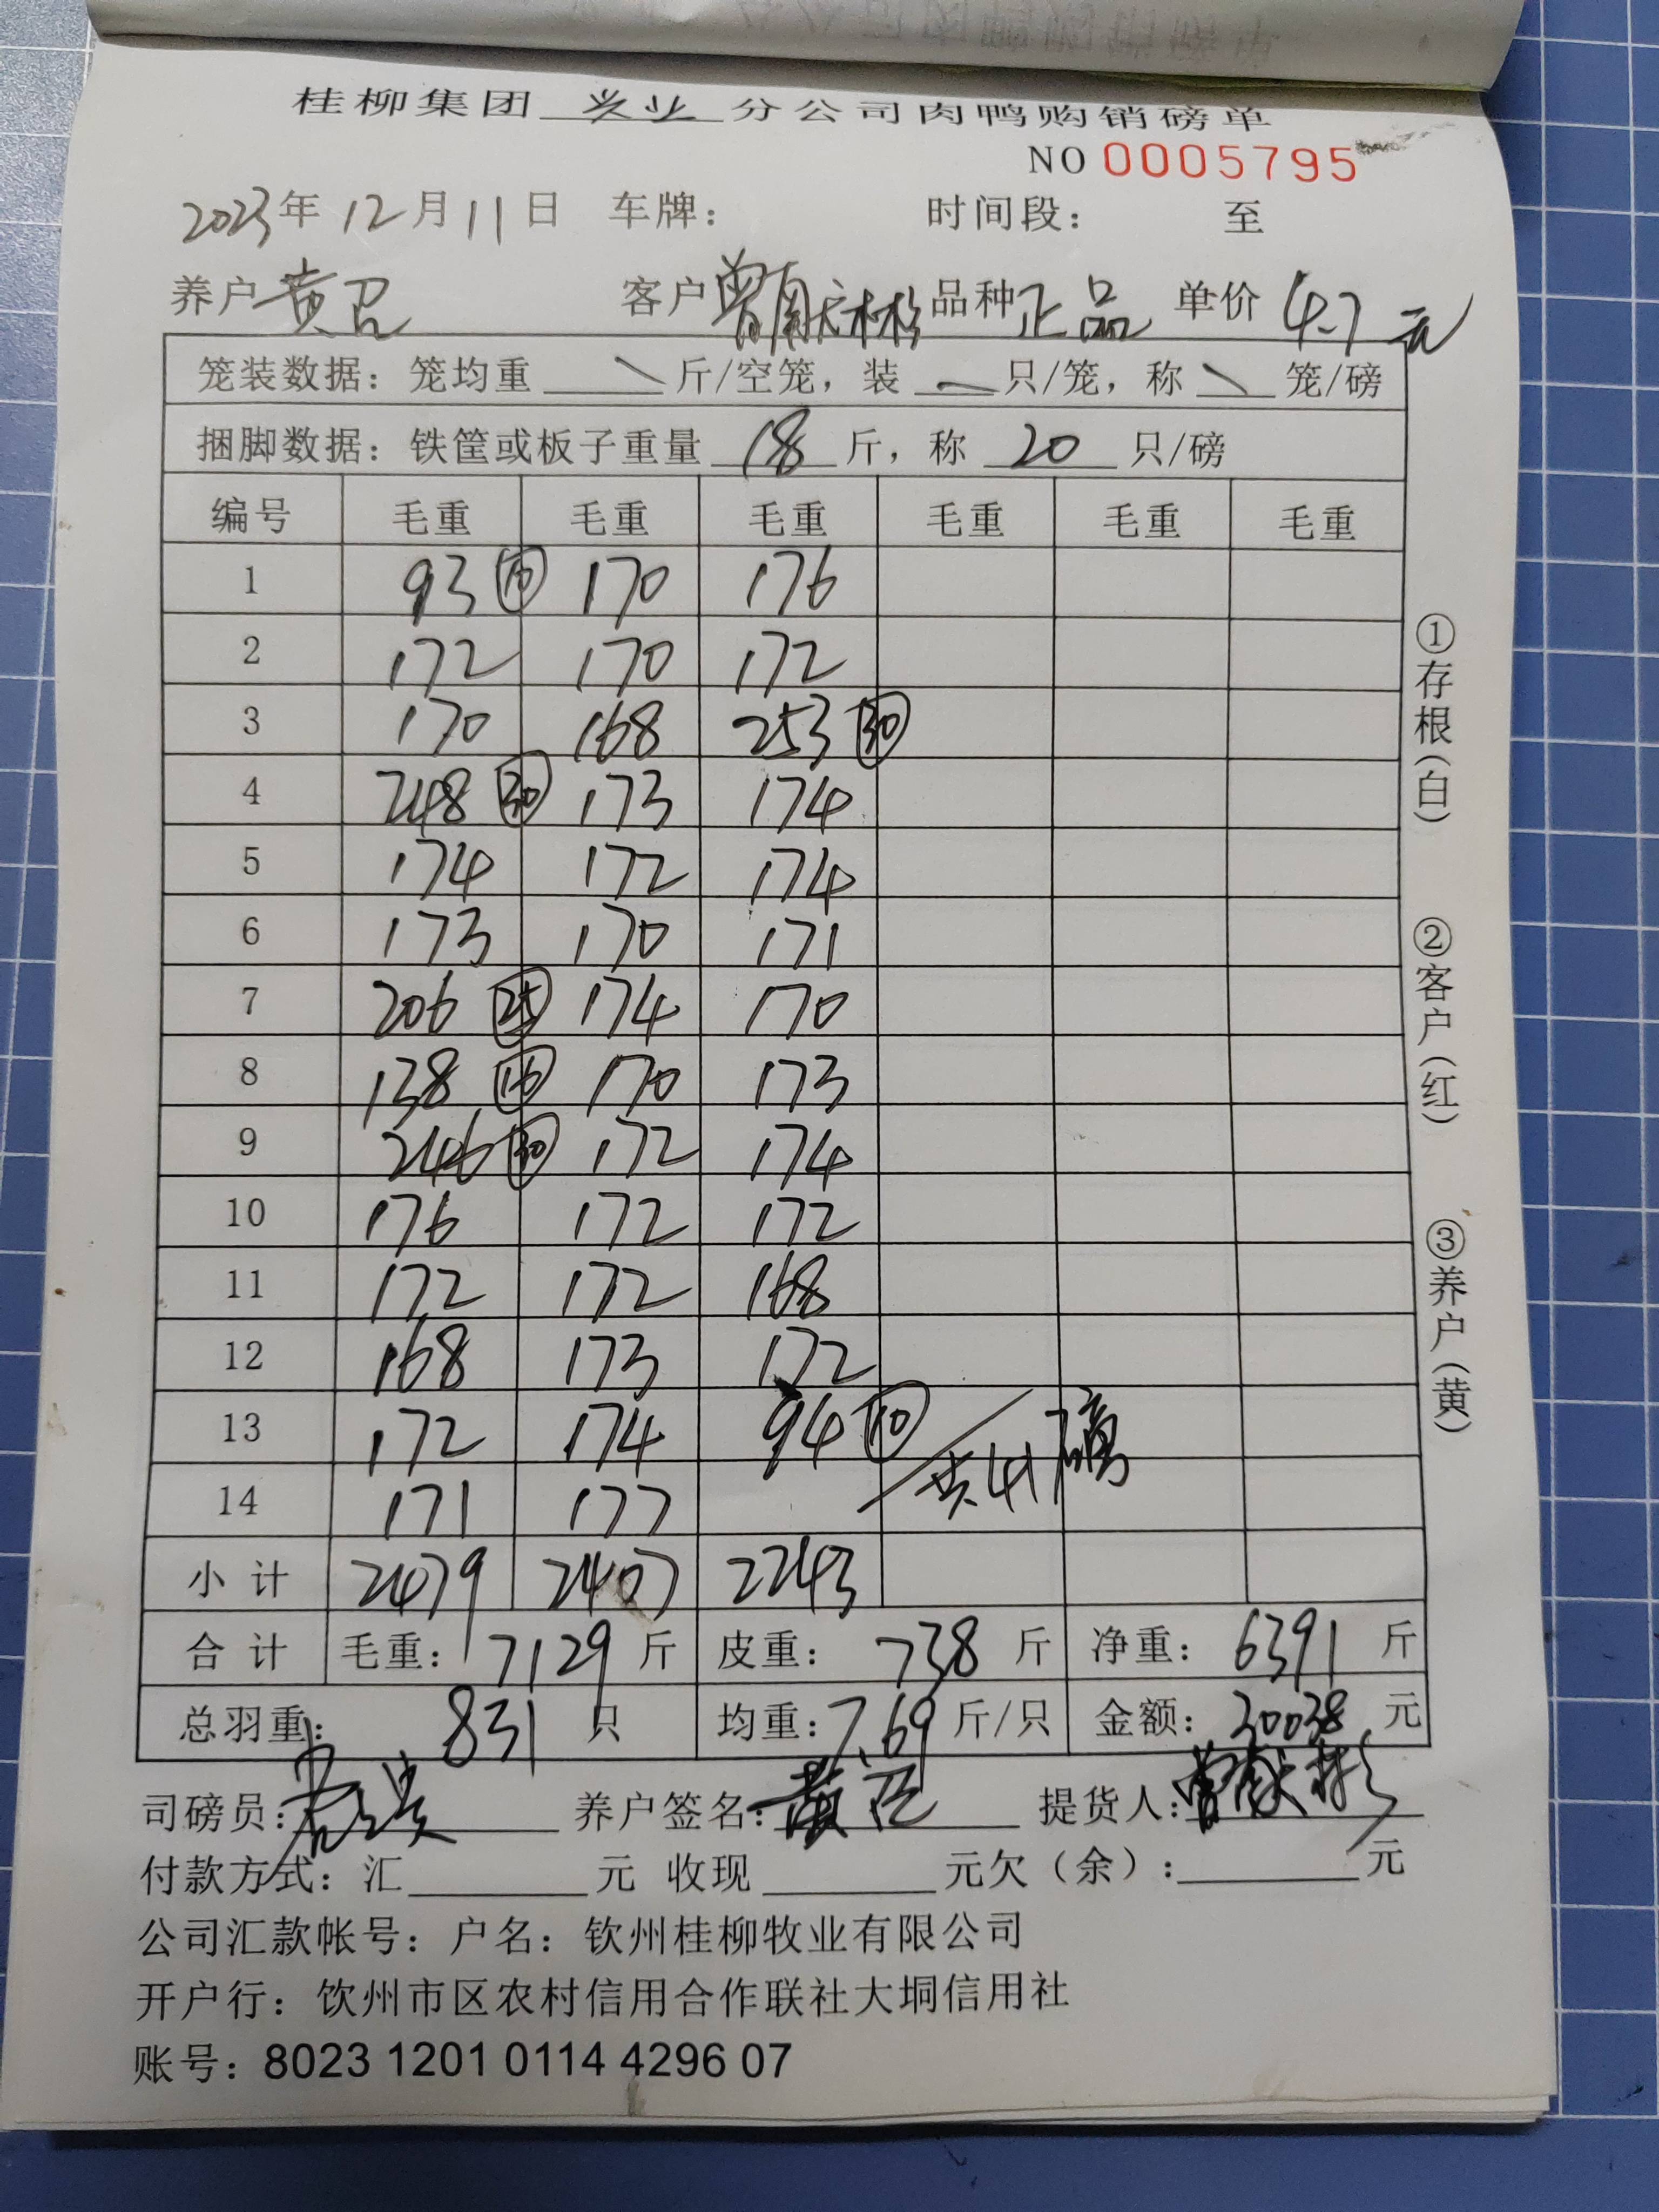 桂柳集团 兴业 分公司肉鸭购销磅单
NO 0005795
2023年 12月 11日 车牌: 时间段: 至
养户 黄召 客户 曾献彬 品种 正品 单价 4.7元
笼装数据: 笼均重 \ 斤/空笼, 装 \ 只/笼, 称 \ 笼/磅
捆脚数据: 铁筐或板子重量 18 斤, 称 20 只/磅
编号 毛重 毛重 毛重 毛重 毛重 毛重
1 93 ⑩ 170 176
2 172 170 172
3 170 168 253 ㉚
4 248 ㉚ 173 174
5 174 172 174
6 173 170 171
7 206 ㉕ 174 170
8 138 170 173
9 246 ㉚ 172 174
10 176 172 172
11 172 172 168
12 168 173 172
13 172 174 94 ⑩ 共41磅
14 171 177
小计 2479 2407 2243
合计 毛重: 7129 斤 皮重: 738 斤 净重: 6391 斤
总羽重: 831 只 均重: 7.69 斤/只 金额: 30038 元
司磅员: 养户签名: 黄召 提货人: 曾献彬
付款方式: 汇 元 收现 元欠(余): 元
公司汇款帐号: 户名: 钦州桂柳牧业有限公司
开户行: 钦州市区农村信用合作联社大垌信用社
账号: 8023 1201 0114 4296 07
①存根(白)
②客户(红)
③养户(黄)